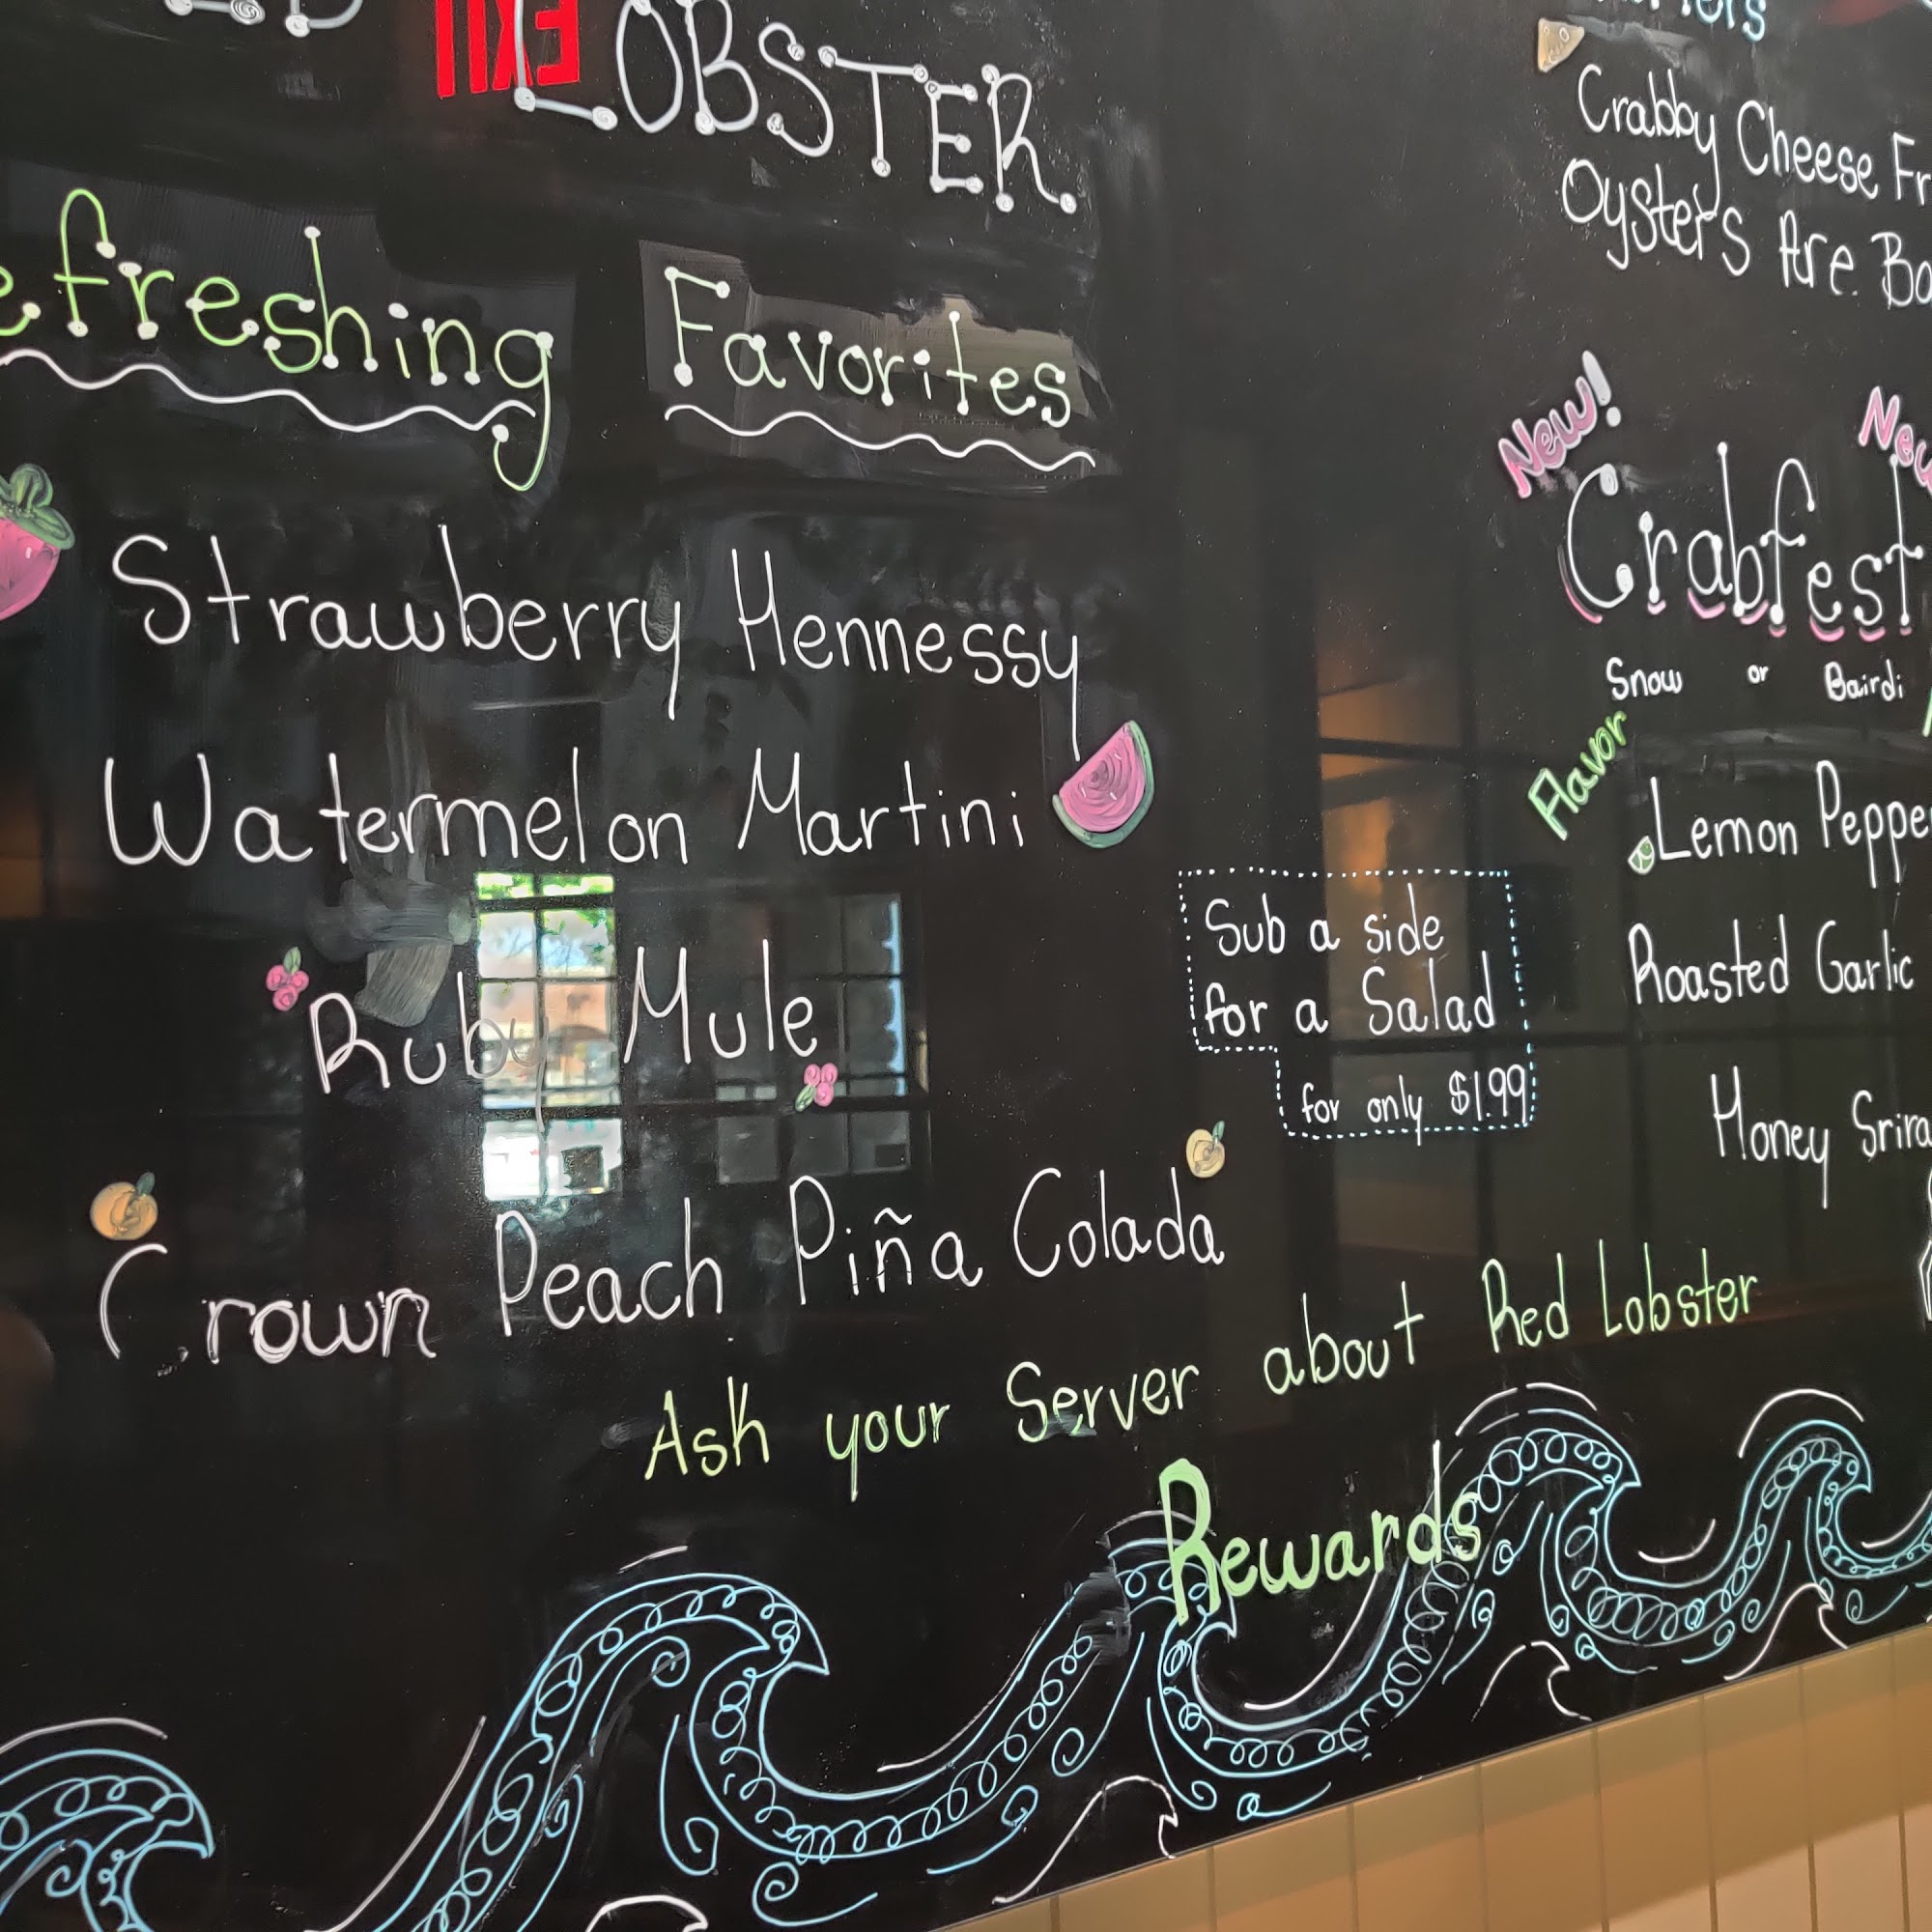 LOBSTER
EXIT
efreshing Favorites
Strawberry Hennessy
Watermelon Martini
Ruby Mule
Crown Peach Piña Colada
Sub a side
for a Salad
for only $1.99
Ask your Server about Red Lobster
Rewards
Crabby Cheese Fr
Oysters Are Bo
New!
New
Crabfest
Snow or Bairdi
Flavor
Lemon Pepper
Roasted Garlic
Honey Srira